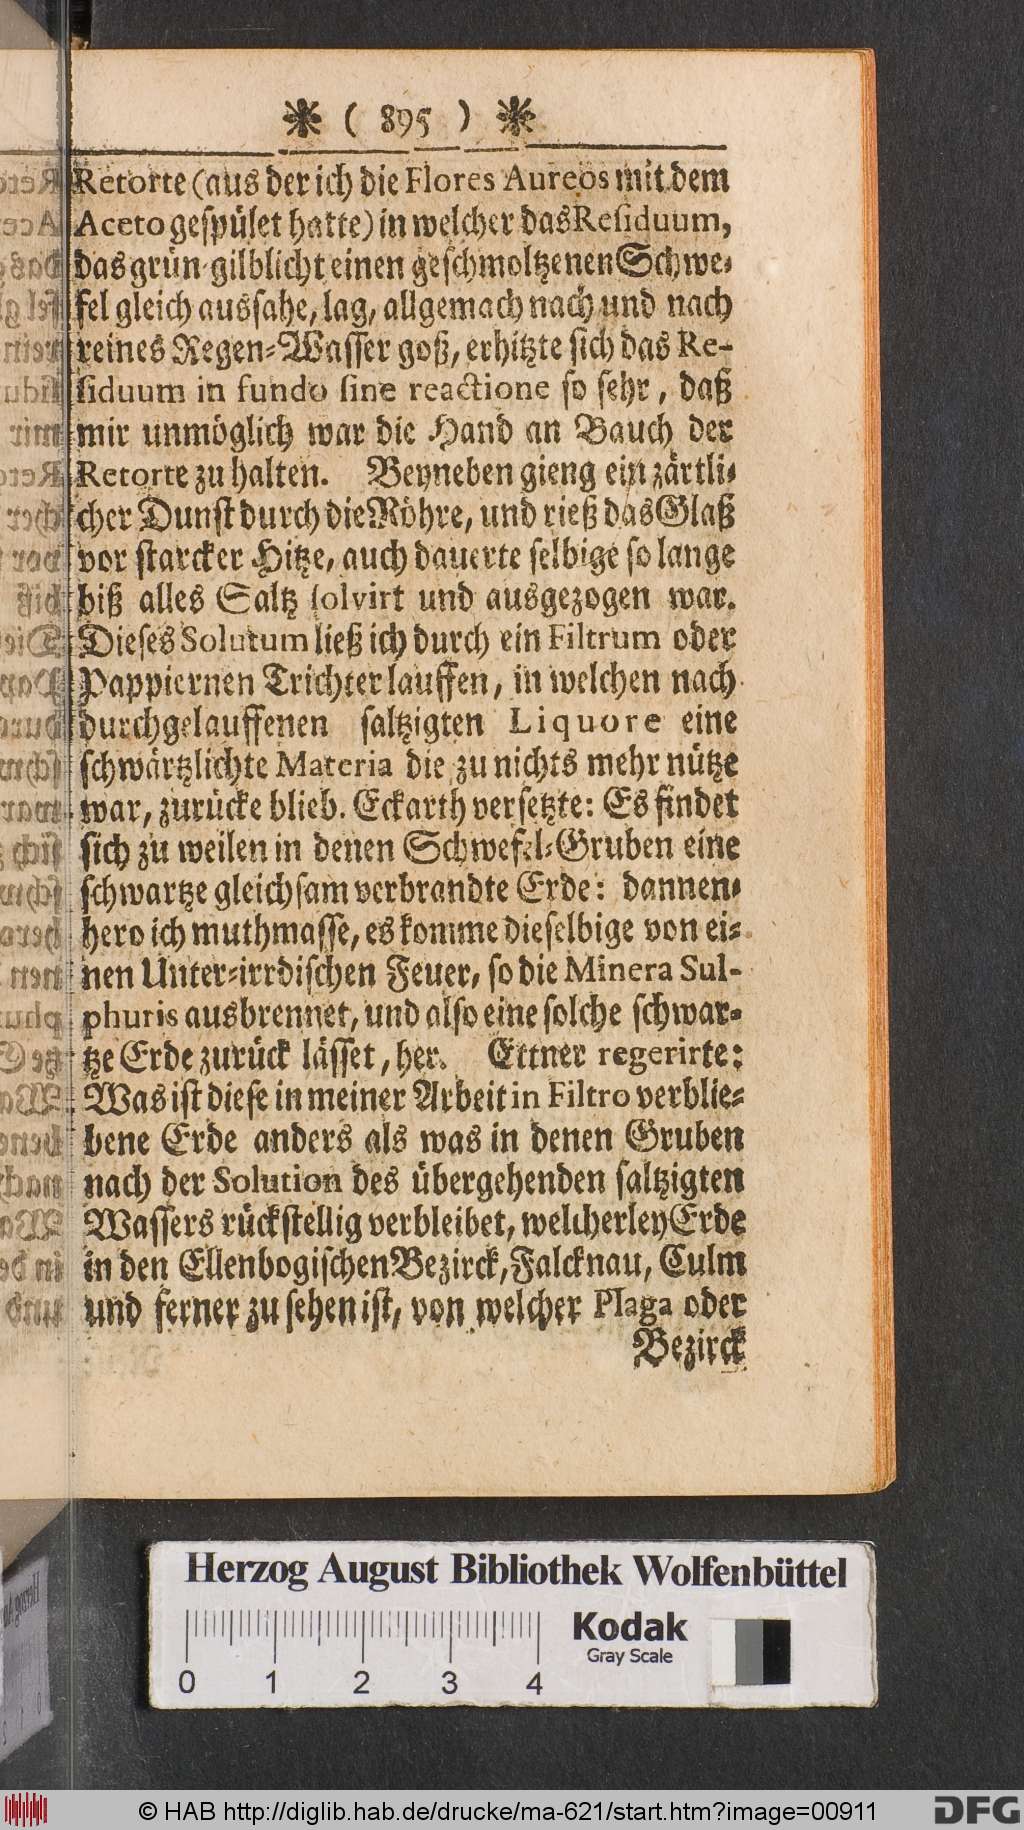 ( 895 )
Retorte (aus der ich die Flores Aureos mit dem
Aceto gespület hatte) in welcher das Residuum,
das grün-gilblicht einen geschmoltzenen Schwe-
fel gleich aussahe, lag, allgemach nach und nach
reines Regen-Wasser goß, erhitzte sich das Re-
siduum in fundo sine reactione so sehr, daß
mir unmöglich war die Hand an Bauch der
Retorte zu halten. Beyneben gieng ein zärtli-
cher Dunst durch die Röhre, und rieß das Glaß
vor starcker Hitze, auch dauerte selbige so lange
biß alles Saltz solvirt und ausgezogen war.
Dieses Solutum ließ ich durch ein Filtrum oder
Pappiernen Trichter lauffen, in welchen nach
durchgelauffenen saltzigten Liquore eine
schwärtzlichte Materia die zu nichts mehr nütze
war, zurücke blieb. Eckarth versetzte: Es findet
sich zu weilen in denen Schwefel-Gruben eine
schwartze gleichsam verbrandte Erde: dannen-
hero ich muthmasse, es komme dieselbige von ei-
nen Unter-irrdischen Feuer, so die Minera Sul-
phuris ausbrennet, und also eine solche schwar-
tze Erde zurück lässet, her. Ettner regerirte:
Was ist diese in meiner Arbeit in Filtro verblie-
bene Erde anders als was in denen Gruben
nach der Solution des übergehenden saltzigten
Wassers rückstellig verbleibet, welcherley Erde
in den Ellenbogischen Bezirck, Falcknau, Culm
und ferner zu sehen ist, von welcher Plaga oder
Bezirck
Herzog August Bibliothek Wolfenbüttel
Kodak
Gray Scale
0 1 2 3 4
© HAB http://diglib.hab.de/drucke/ma-621/start.htm?image=00911
DFG